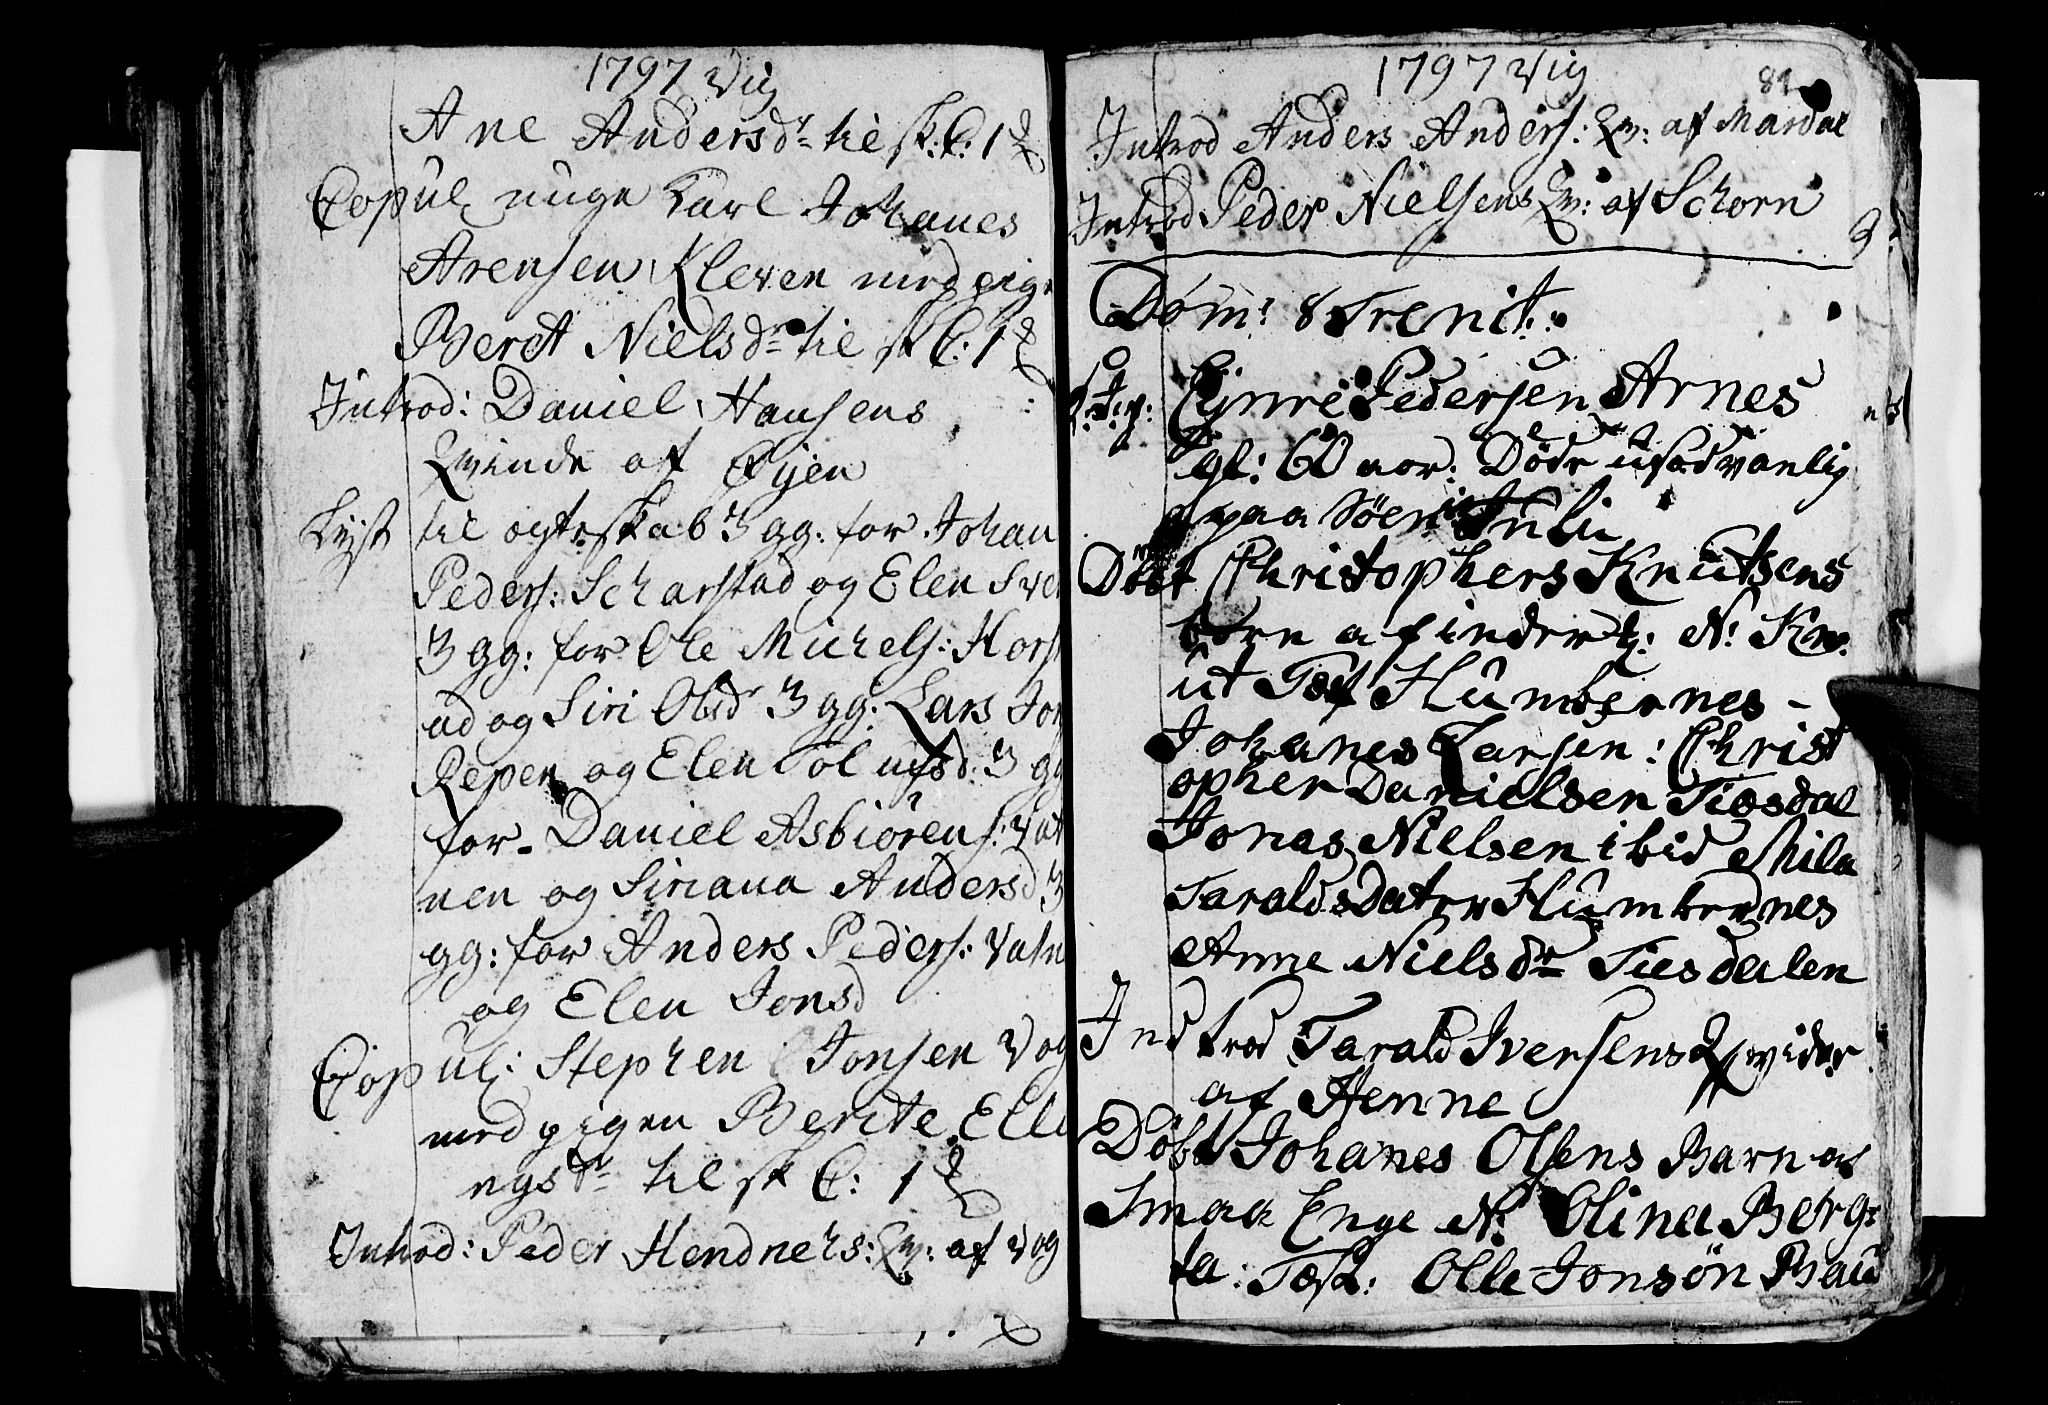 1797 Vig
Ane Andersdr til sk: C: 1
Copul unge Karl Johanes
Arensen Kleven med pige
Beret Nielsdr til sk C: 1
Introd: Daniel Hansens
Qvinde af Øyen
Lyst til ægteskab 3 gg: for Johan
Peders: Scharstad og Elen Sver
3 gg: for Ole Michels: Horst
ad og Siri Olsd 3 gg: Lars Jon
Repen og Elen Tolufsd: 3 gg
for Daniel Asbiørens: Vat
nen og Siriana Andersd 3
gg: for Anders Peders: Vatn
og Elen Jonsd
Copul: Stephen Jonsen Vog
med pigen Berite Elli
ngsdr til sk C: 1
Introd: Peder Hendrichs: Qv: af Vog
1797 Vig 81
Introd Anders Anders: Qv: af Mardal
Introd Peder Nielsens Qv: af Schorn
Dom: 8 Trenit:
Ejnre Pedersen Arnes
gl: 60 aar: Døde usædvanlig
paa Søen Juli
Døbt Christophers Knutsens
børn af inder N: Kn
ut Test Humbernes -
Johanes Larsen: Christ
opher Danielsen Tiosdal
Jonas Nielsen ibid Mila
Taralds Dater Humbernes
Anne Nielsdr Tiesdalen
Indtrod Tarald Iversens Qvinder
af Henne
Døbt Johanes Olsens Barn af
Smaa Enge N: Olina Berg:
ta: Test: Olle Jonsøn Baü